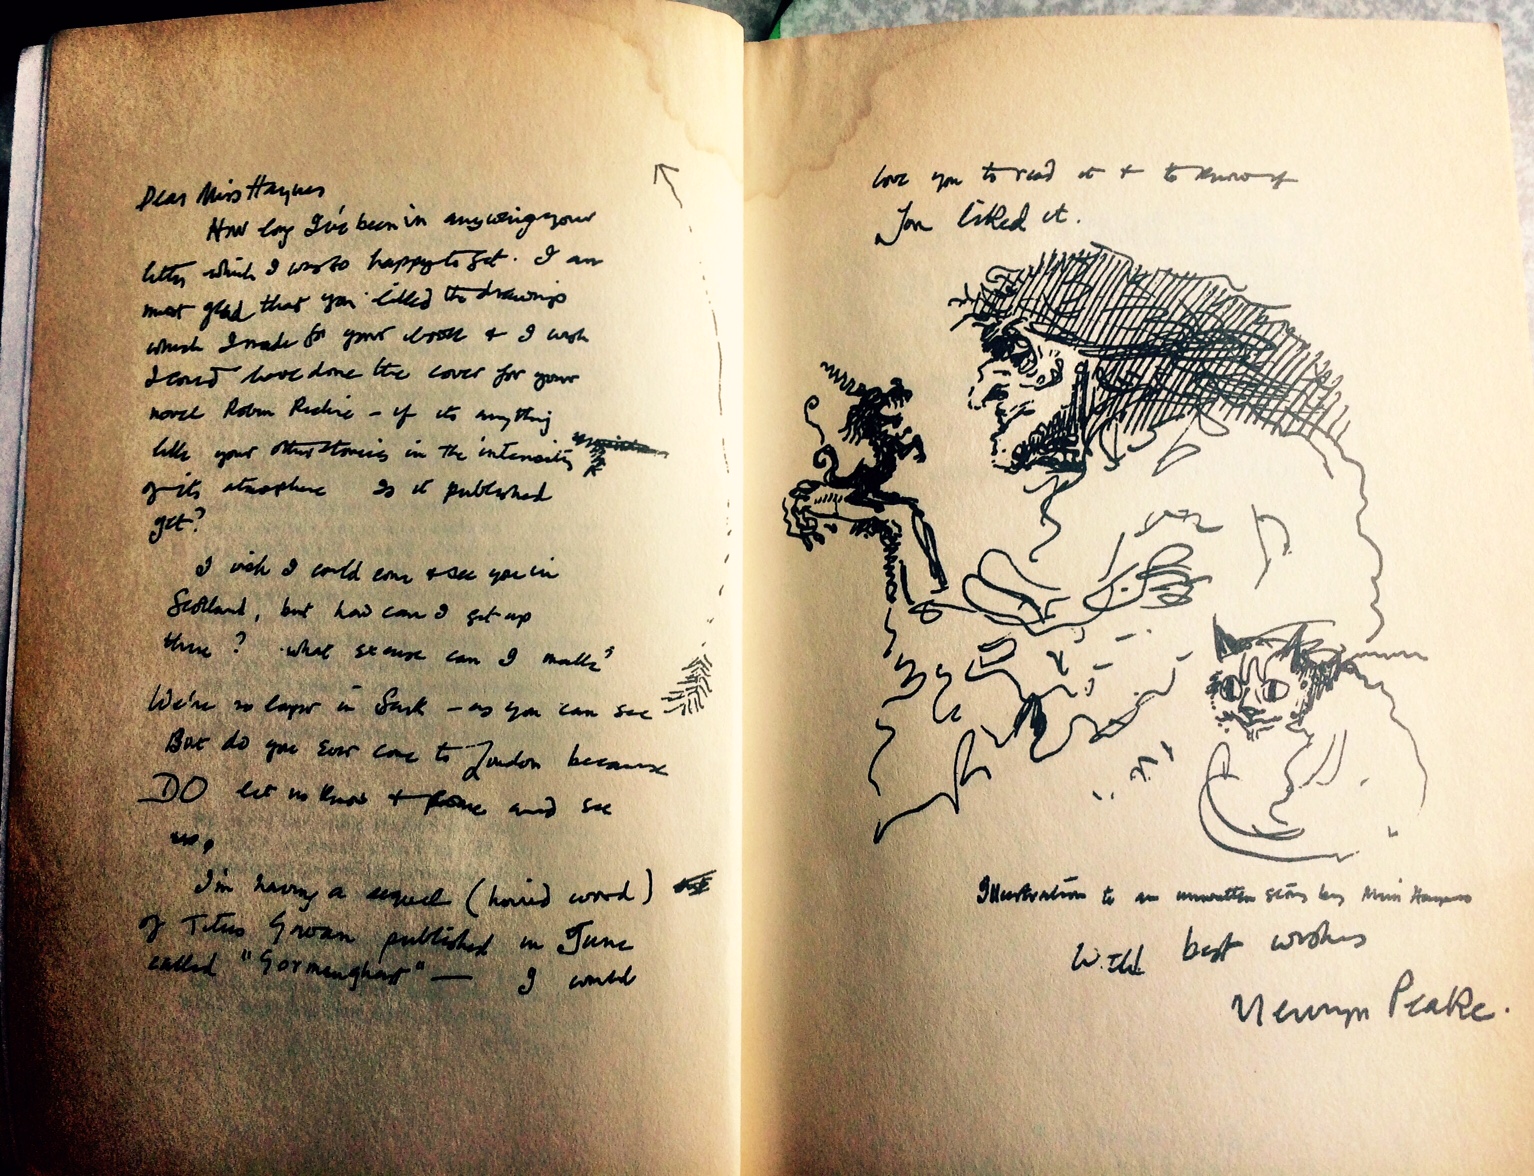 Dear Miss Haynes
How long I've been in answering your
letter which I was so happy to get. I am
most glad that you liked the drawings
which I made for your book & I wish
I could have done the cover for your
novel Robin Ritchie – if its anything
like your other stories in the intensity
of its atmosphere Is it published
yet?
I wish I could come & see you in
Scotland, but how can I get up
there? what excuse can I make?
We're no longer in Sark – as you can see
But do you ever come to London because
DO let us know & come and see
us,
I'm having a sequel (horrid word)
of Titus Groan published in June
called "Gormenghast" — I would
love you to read it & to know if
you liked it.
Illustration to an unwritten story by Miss Haynes
With best wishes
Mervyn Peake.